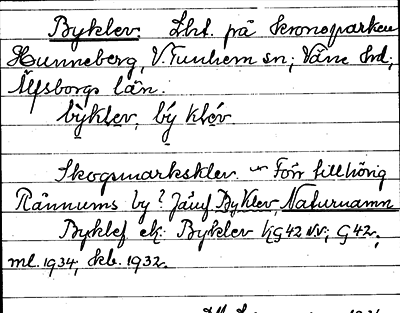 Byklev. Lht. på kronoparken
Hunneberg, V. Tunhem sn; Väne hd;
Älfsborgs län.
bỳklev, bý klév
Skogsmarksklev. Förr tillhörig
Rännums by? Jämf By Klev, Naturnamn
Byklef ek. Byklev kG42 v.v; G42,
ml. 1934, skb. 1932.